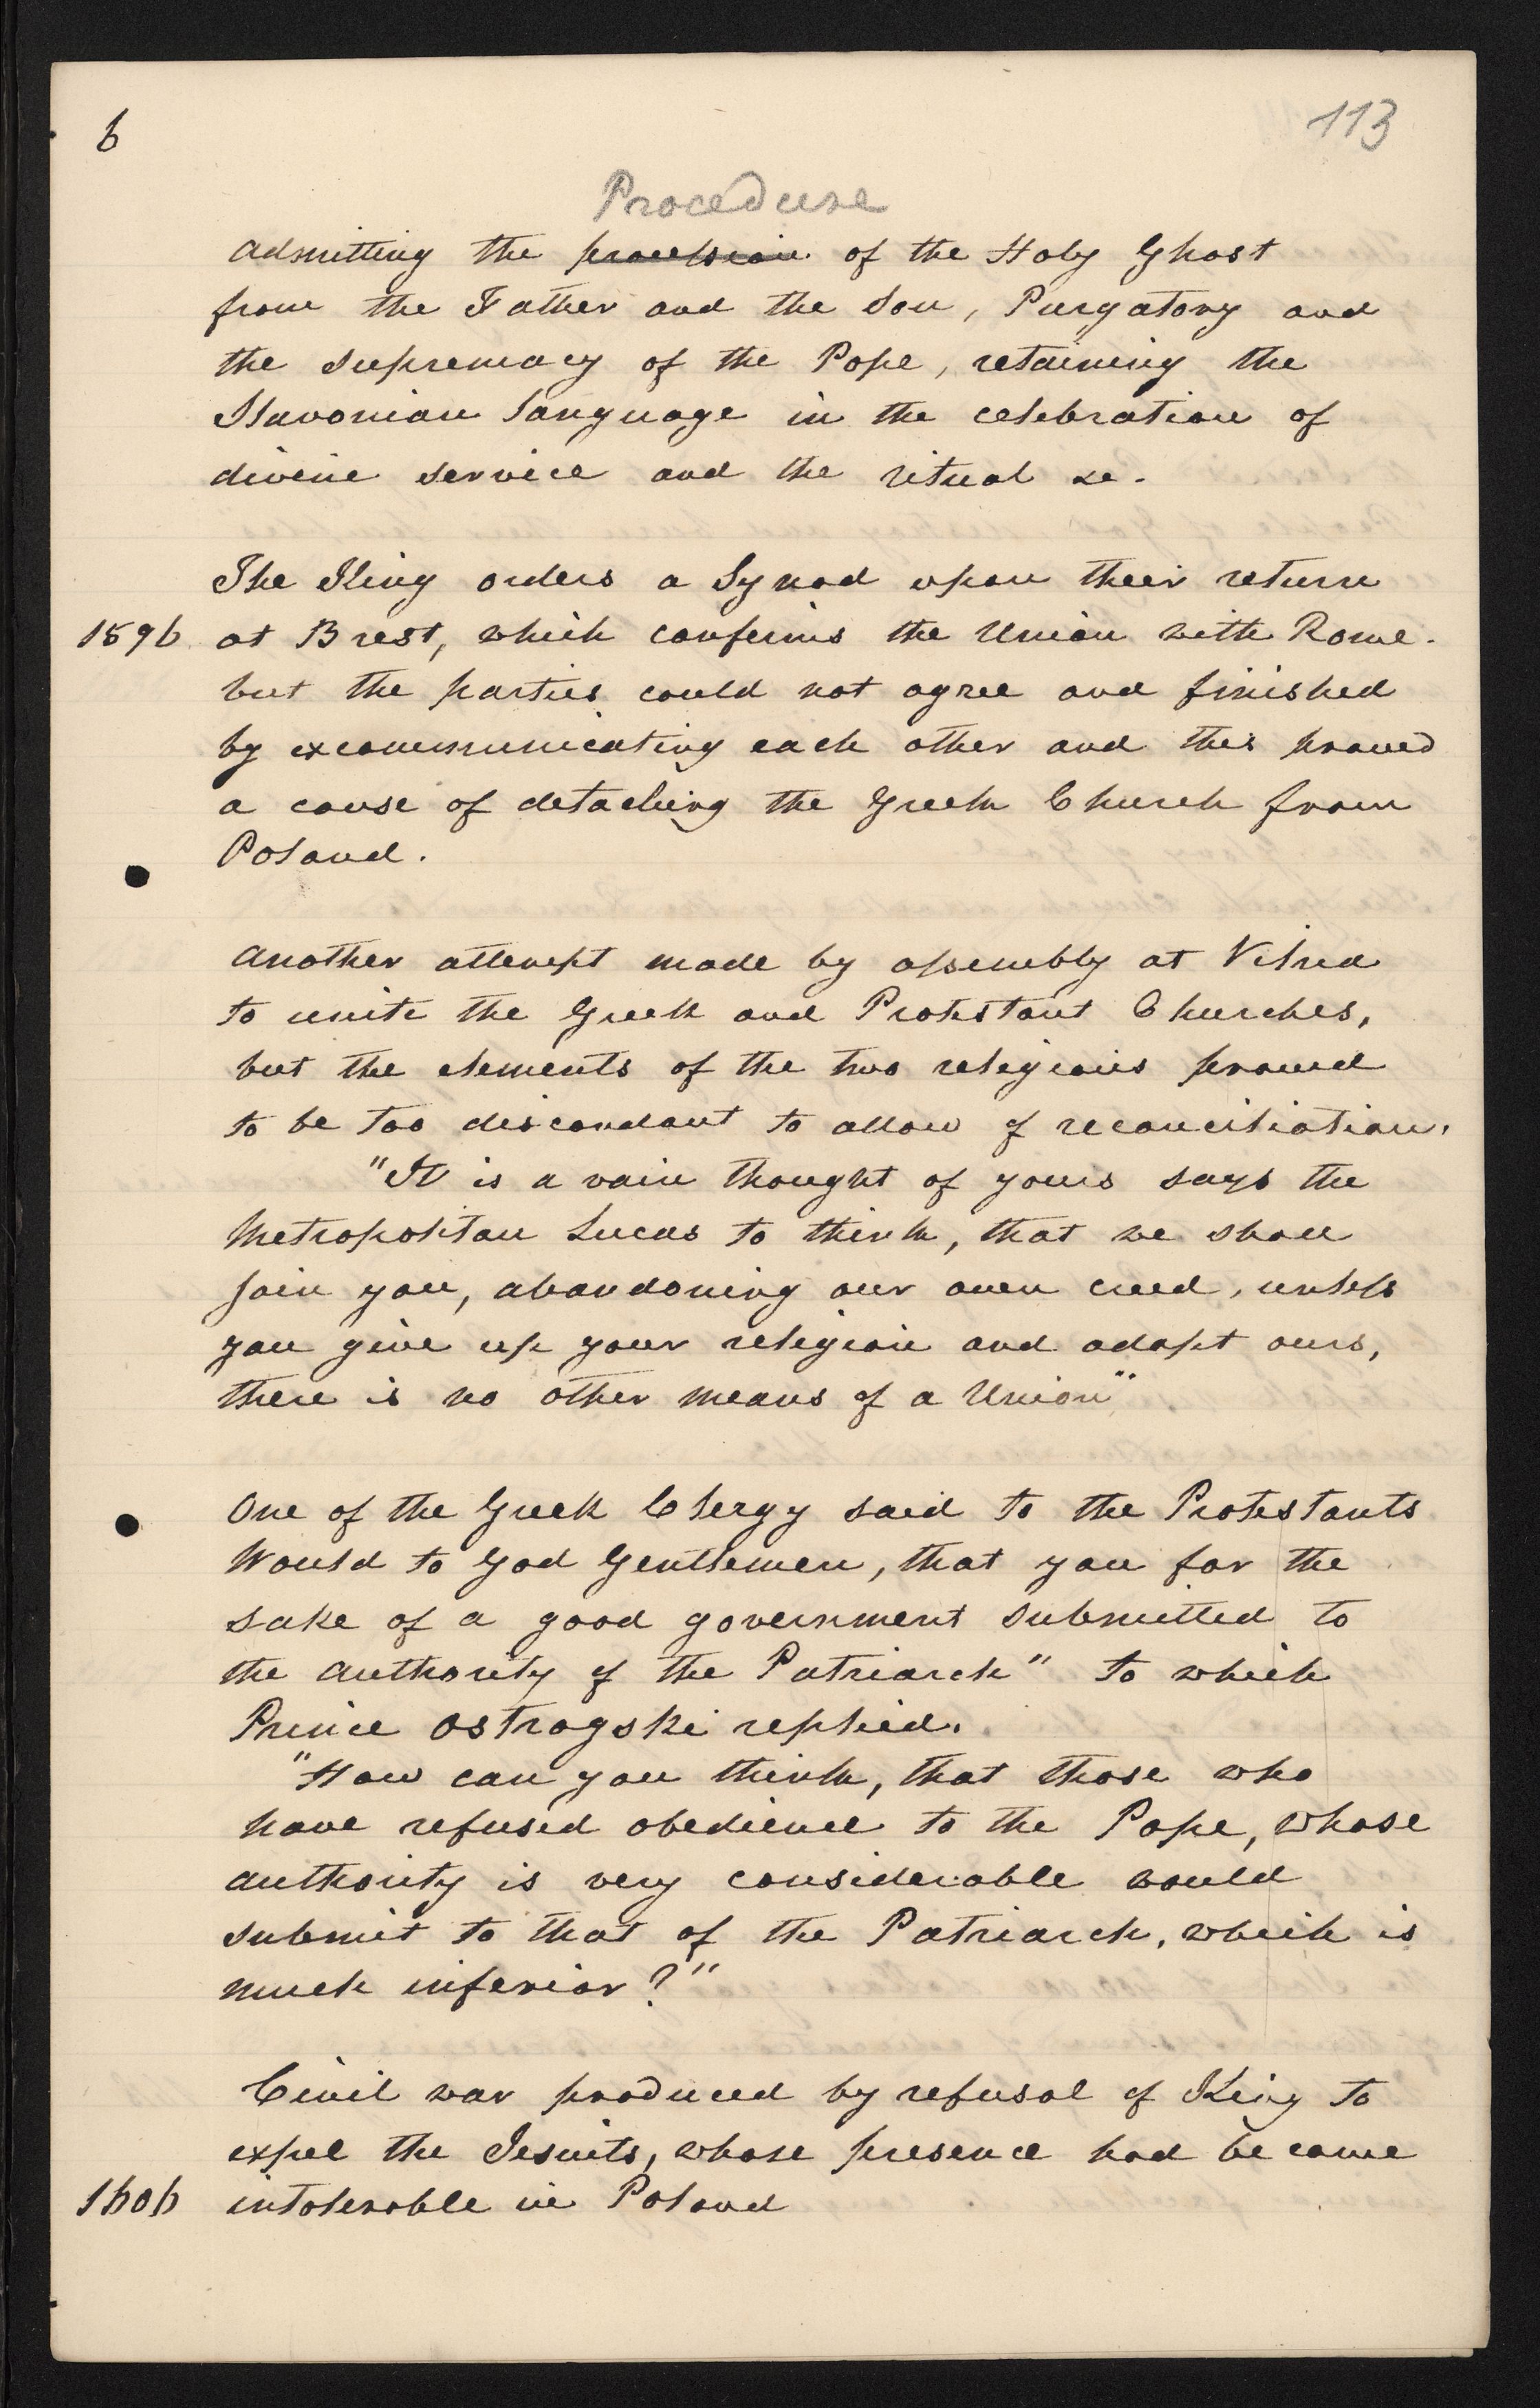 6
113
Procedure
admitting the procession of the Holy Ghost
from the Father and the Son, Purgatory and
the supremacy of the Pope, retaining the
Slavonian language in the celebration of
divine service and the ritual &c.
The King orders a Synod upon their return
1596 at Brest, which confirms the Union with Rome.
but the parties could not agree and finished
by excommunicating each other and this proved
a cause of detaching the Greek Church from
Poland.
Another attempt made by assembly at Vilna
to unite the Greek and Protestant Churches,
but the elements of the two religions proved
to be too discordant to allow of reconciliation.
"It is a vain thought of yours says the
Metropolitan Lucas to think, that we shall
join you, abandoning our own creed, unless
you give up your religion and adopt ours,
there is no other means of a Union"
One of the Greek Clergy said to the Protestants
Would to God Gentlemen, that you for the
sake of a good government submitted to
the authority of the Patriarch" to which
Prince Ostrogski replied.
"How can you think, that those who
have refused obedience to the Pope, whose
authority is very considerable would
submit to that of the Patriarch, which is
much inferior?"
Civil war produced by refusal of King to
expel the Jesuits, whose presence had become
1606 intolerable in Poland